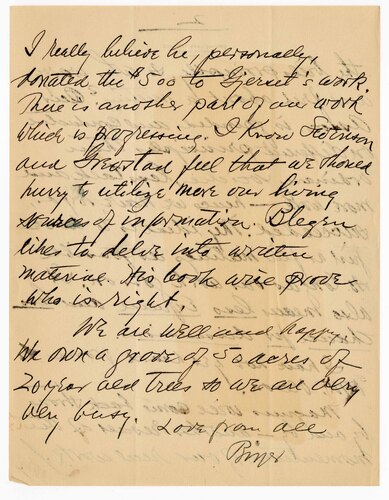 2
I really believe he, personally,
donated the $500 to Gjerset's work.
There is another part of our work
which is progressing. I know
and feel that we should
hurry to utilize more our living
sources of information. Blegen
likes to delve into written
material. His book will prove
who is right
We are well and happy.
We own a grove of 50 acres of
20 year old trees so we are very
very busy. Love from all
Birger